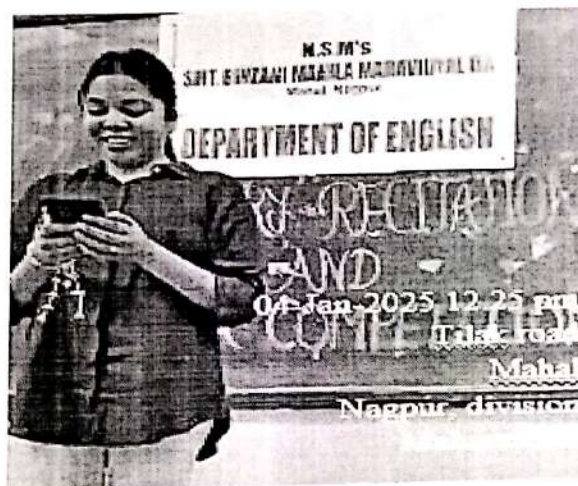 N.S.M's
SMT. BINZANI MAHILA MAHAVIDYALAYA
Mahal, Nagpur
DEPARTMENT OF ENGLISH
RECITATION
AND
COMPETITION
04-Jan-2025 12.25 pm
Tilak road
Mahal
Nagpur, division